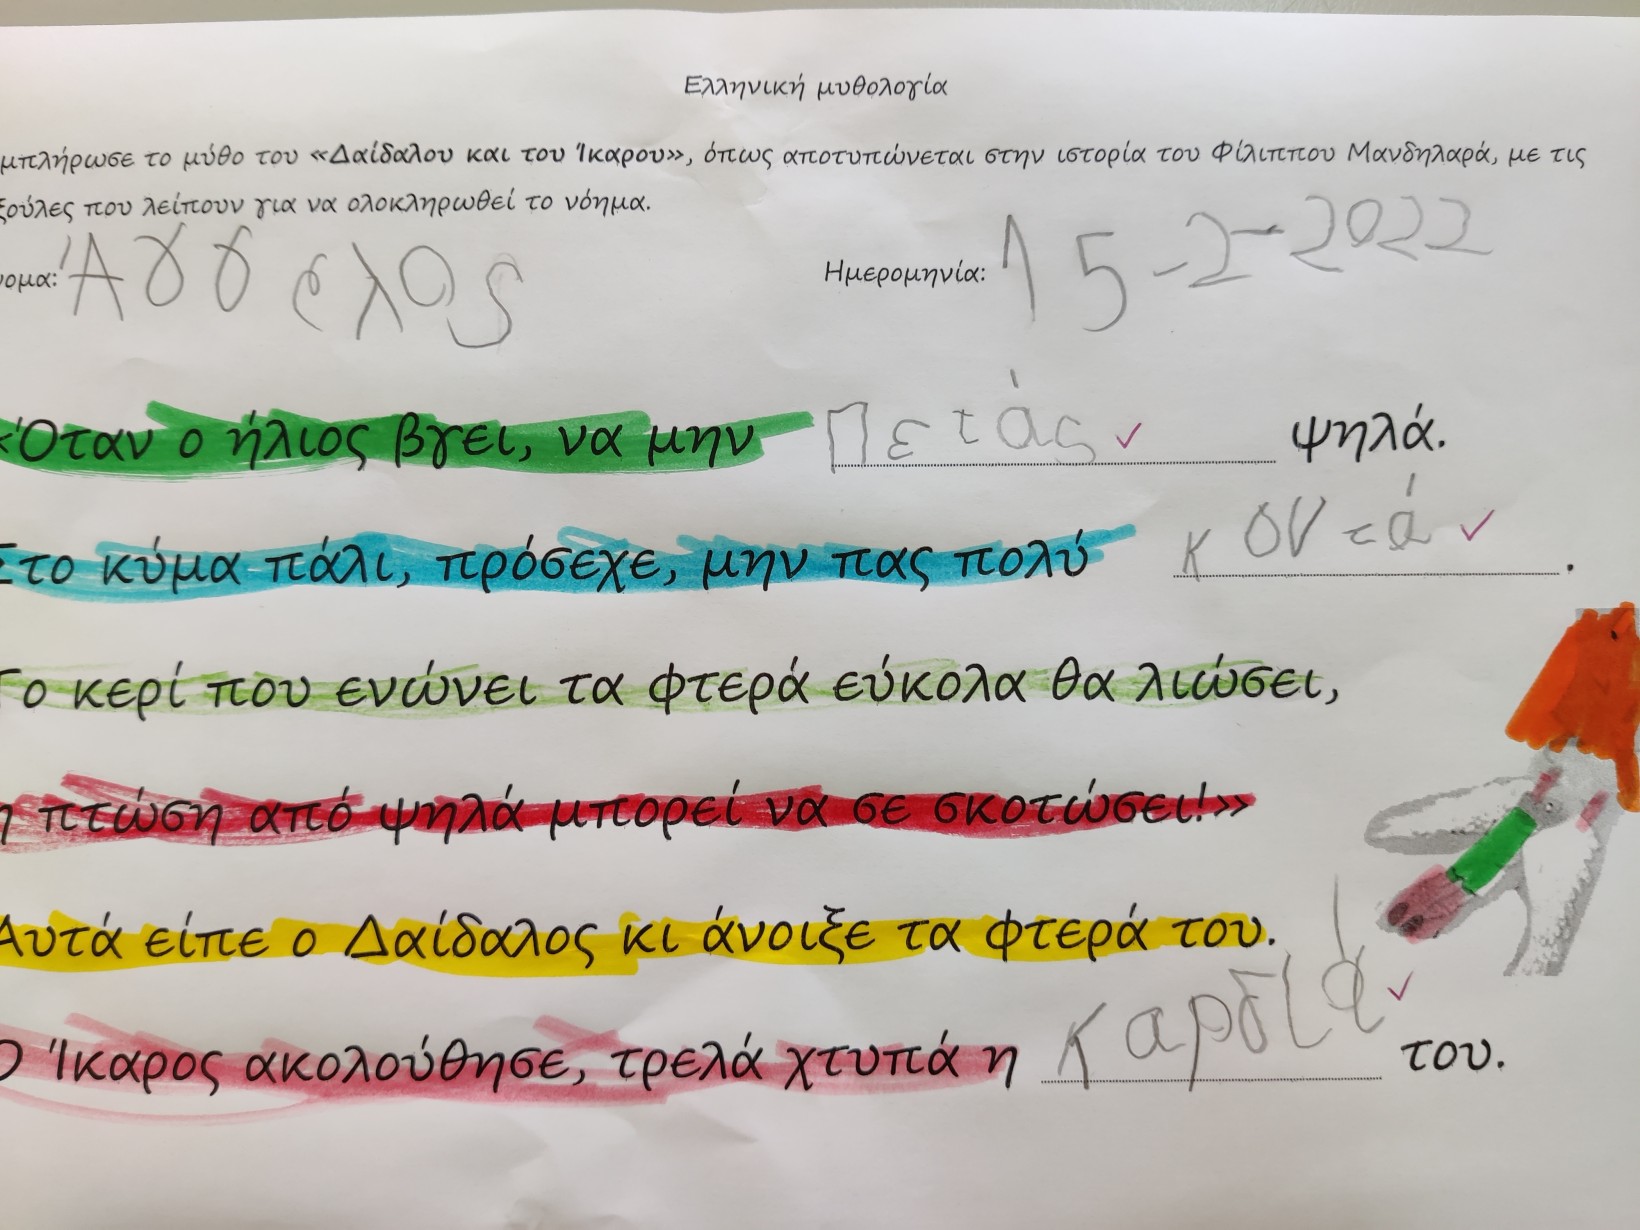 Ελληνική μυθολογία
μπλήρωσε το μύθο του «Δαίδαλου και του Ίκαρου», όπως αποτυπώνεται στην ιστορία του Φίλιππου Μανδηλαρά, με τις
ξούλες που λείπουν για να ολοκληρωθεί το νόημα.
νομα: Άγγελος Ημερομηνία: 15-2-2022
«Όταν ο ήλιος βγει, να μην Πετάς ψηλά.
Στο κύμα πάλι, πρόσεχε, μην πας πολύ κοντά.
Το κερί που ενώνει τα φτερά εύκολα θα λιώσει,
η πτώση από ψηλά μπορεί να σε σκοτώσει!»
Αυτά είπε ο Δαίδαλος κι άνοιξε τα φτερά του.
Ο Ίκαρος ακολούθησε, τρελά χτυπά η καρδιά του.